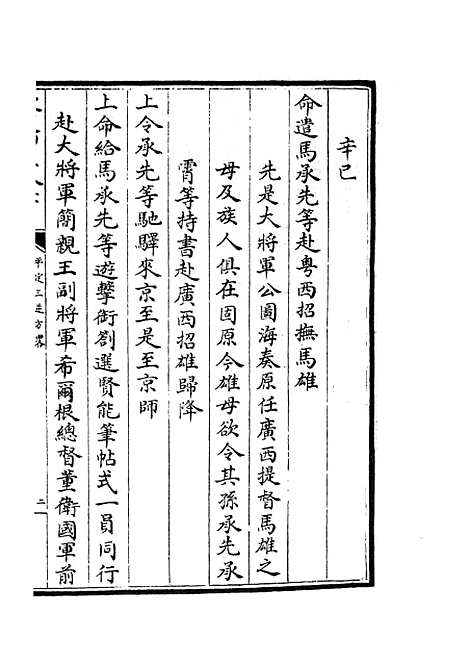 辛巳
命遣馬承先等赴粵西招撫馬雄
先是大將軍公圖海奏原任廣西提督馬雄之
母及族人俱在固原今雄母欲令其孫承先承
霄等持書赴廣西招雄歸降
上令承先等馳驛來京至是至京師
上命給馬承先等遊擊銜劄選賢能筆帖式一員同行
赴大將軍簡親王副將軍希爾根總督董衛國軍前
平定三逆方略
二